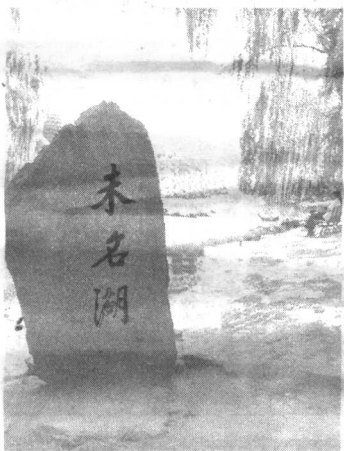 未名湖